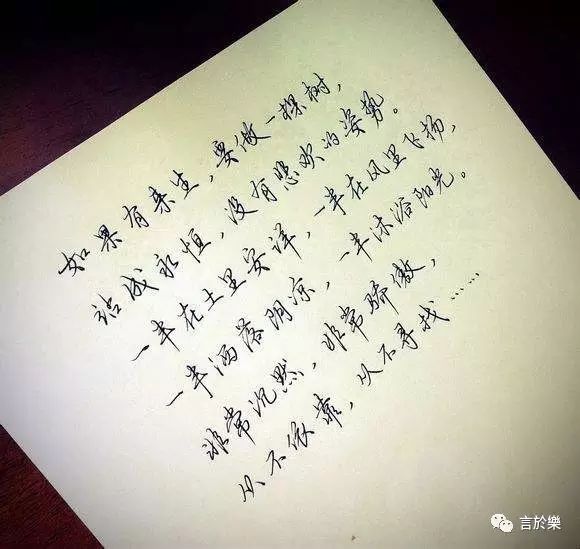 如果有来生，要做一棵树，
站成永恒，没有悲欢的姿势。
一半在土里安详，一半在风里飞扬，
一半洒落阴凉，一半沐浴阳光。
非常沉默，非常骄傲，
从不依靠，从不寻找……
言於樂